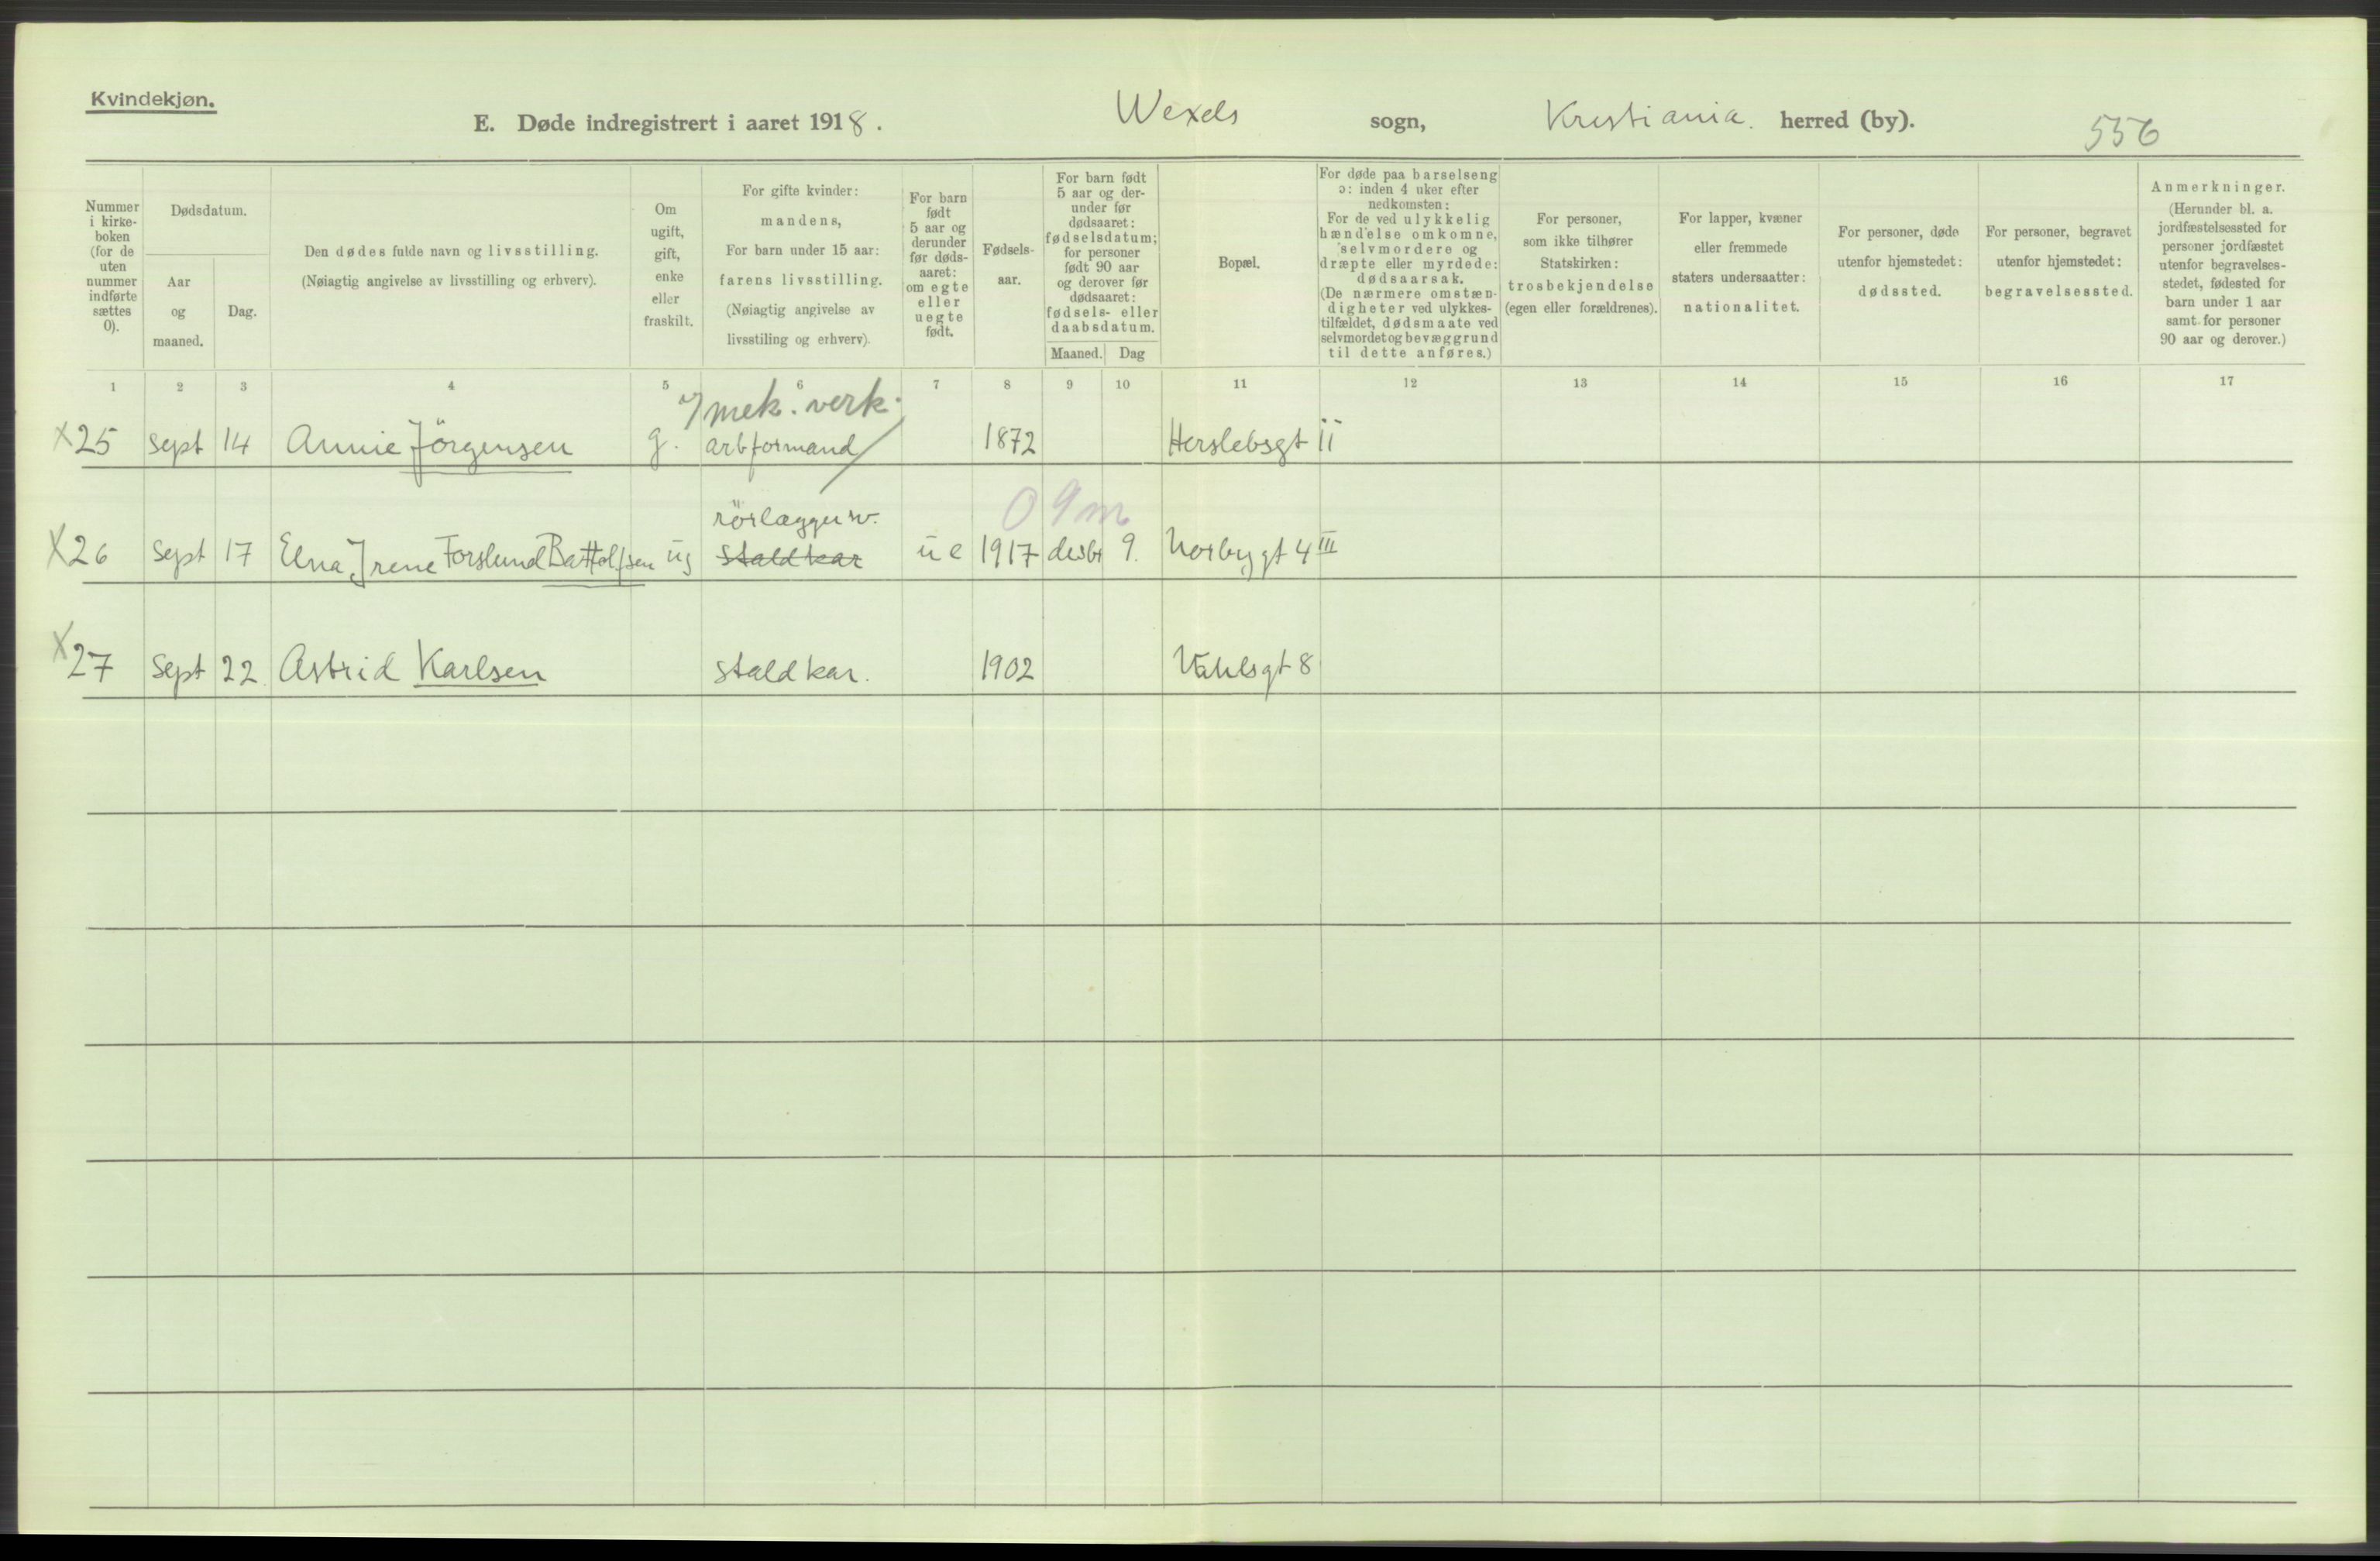 Kvindekjøn.
E. Døde indregistrert i aaret 1918. Wexels sogn, Kristiania. herred (by). 556
Nummer
i kirke-
boken
(for de
uten
nummer
indførte
sættes
0).
Dødsdatum.
Aar
og
maaned.
Dag.
Den dødes fulde navn og livsstilling.
(Nøiagtig angivelse av livsstilling og erhverv).
Om
ugift,
gift,
enke
eller
fraskilt.
For gifte kvinder:
mandens,
For barn under 15 aar:
farens livsstilling.
(Nøiagtig angivelse av
livsstiling og erhverv).
For barn
født
5 aar og
derunder
før døds-
aaret:
om egte
eller
uegte
født.
Fødsels-
aar.
For barn født
5 aar og der-
under før
dødsaaret:
fødselsdatum;
for personer
født 90 aar
og derover før
dødsaaret:
fødsels- eller
daabsdatum.
Maaned. Dag
Bopæl.
For døde paa barselseng
ɔ: inden 4 uker efter
nedkomsten:
For de ved ulykkelig
hændelse omkomne,
selvmordere og
dræpte eller myrdede:
dødsaarsak.
(De nærmere omstæn-
digheter ved ulykkes-
tilfældet, dødsmaate ved
selvmordet og bevæggrund
til dette anføres.)
For personer,
som ikke tilhører
Statskirken:
trosbekjendelse
(egen eller forældrenes).
For lapper, kvæner
eller fremmede
staters undersaatter:
nationalitet.
For personer, døde
utenfor hjemstedet:
dødssted.
For personer, begravet
utenfor hjemstedet:
begravelsessted.
Anmerkninger.
(Herunder bl. a.
jordfæstelsessted for
personer jordfæstet
utenfor begravelses-
stedet, fødested for
barn under 1 aar
samt for personer
90 aar og derover.)
1 2 3 4 5 6 7 8 9 10 11 12 13 14 15 16 17
mek. verk.
x25 Sept 14 Annie Jörgensen g. arbformand 1872 Herslebsgt 11
rörlægger 0 9 m
x26 Sept 17 Elna Irene Forslund ug staldkar ue 1917 desbr 9. Norbygt 4 III
x27 Sept 22 Astrid Karlsen staldkar. 1902 Vahlsgt 8